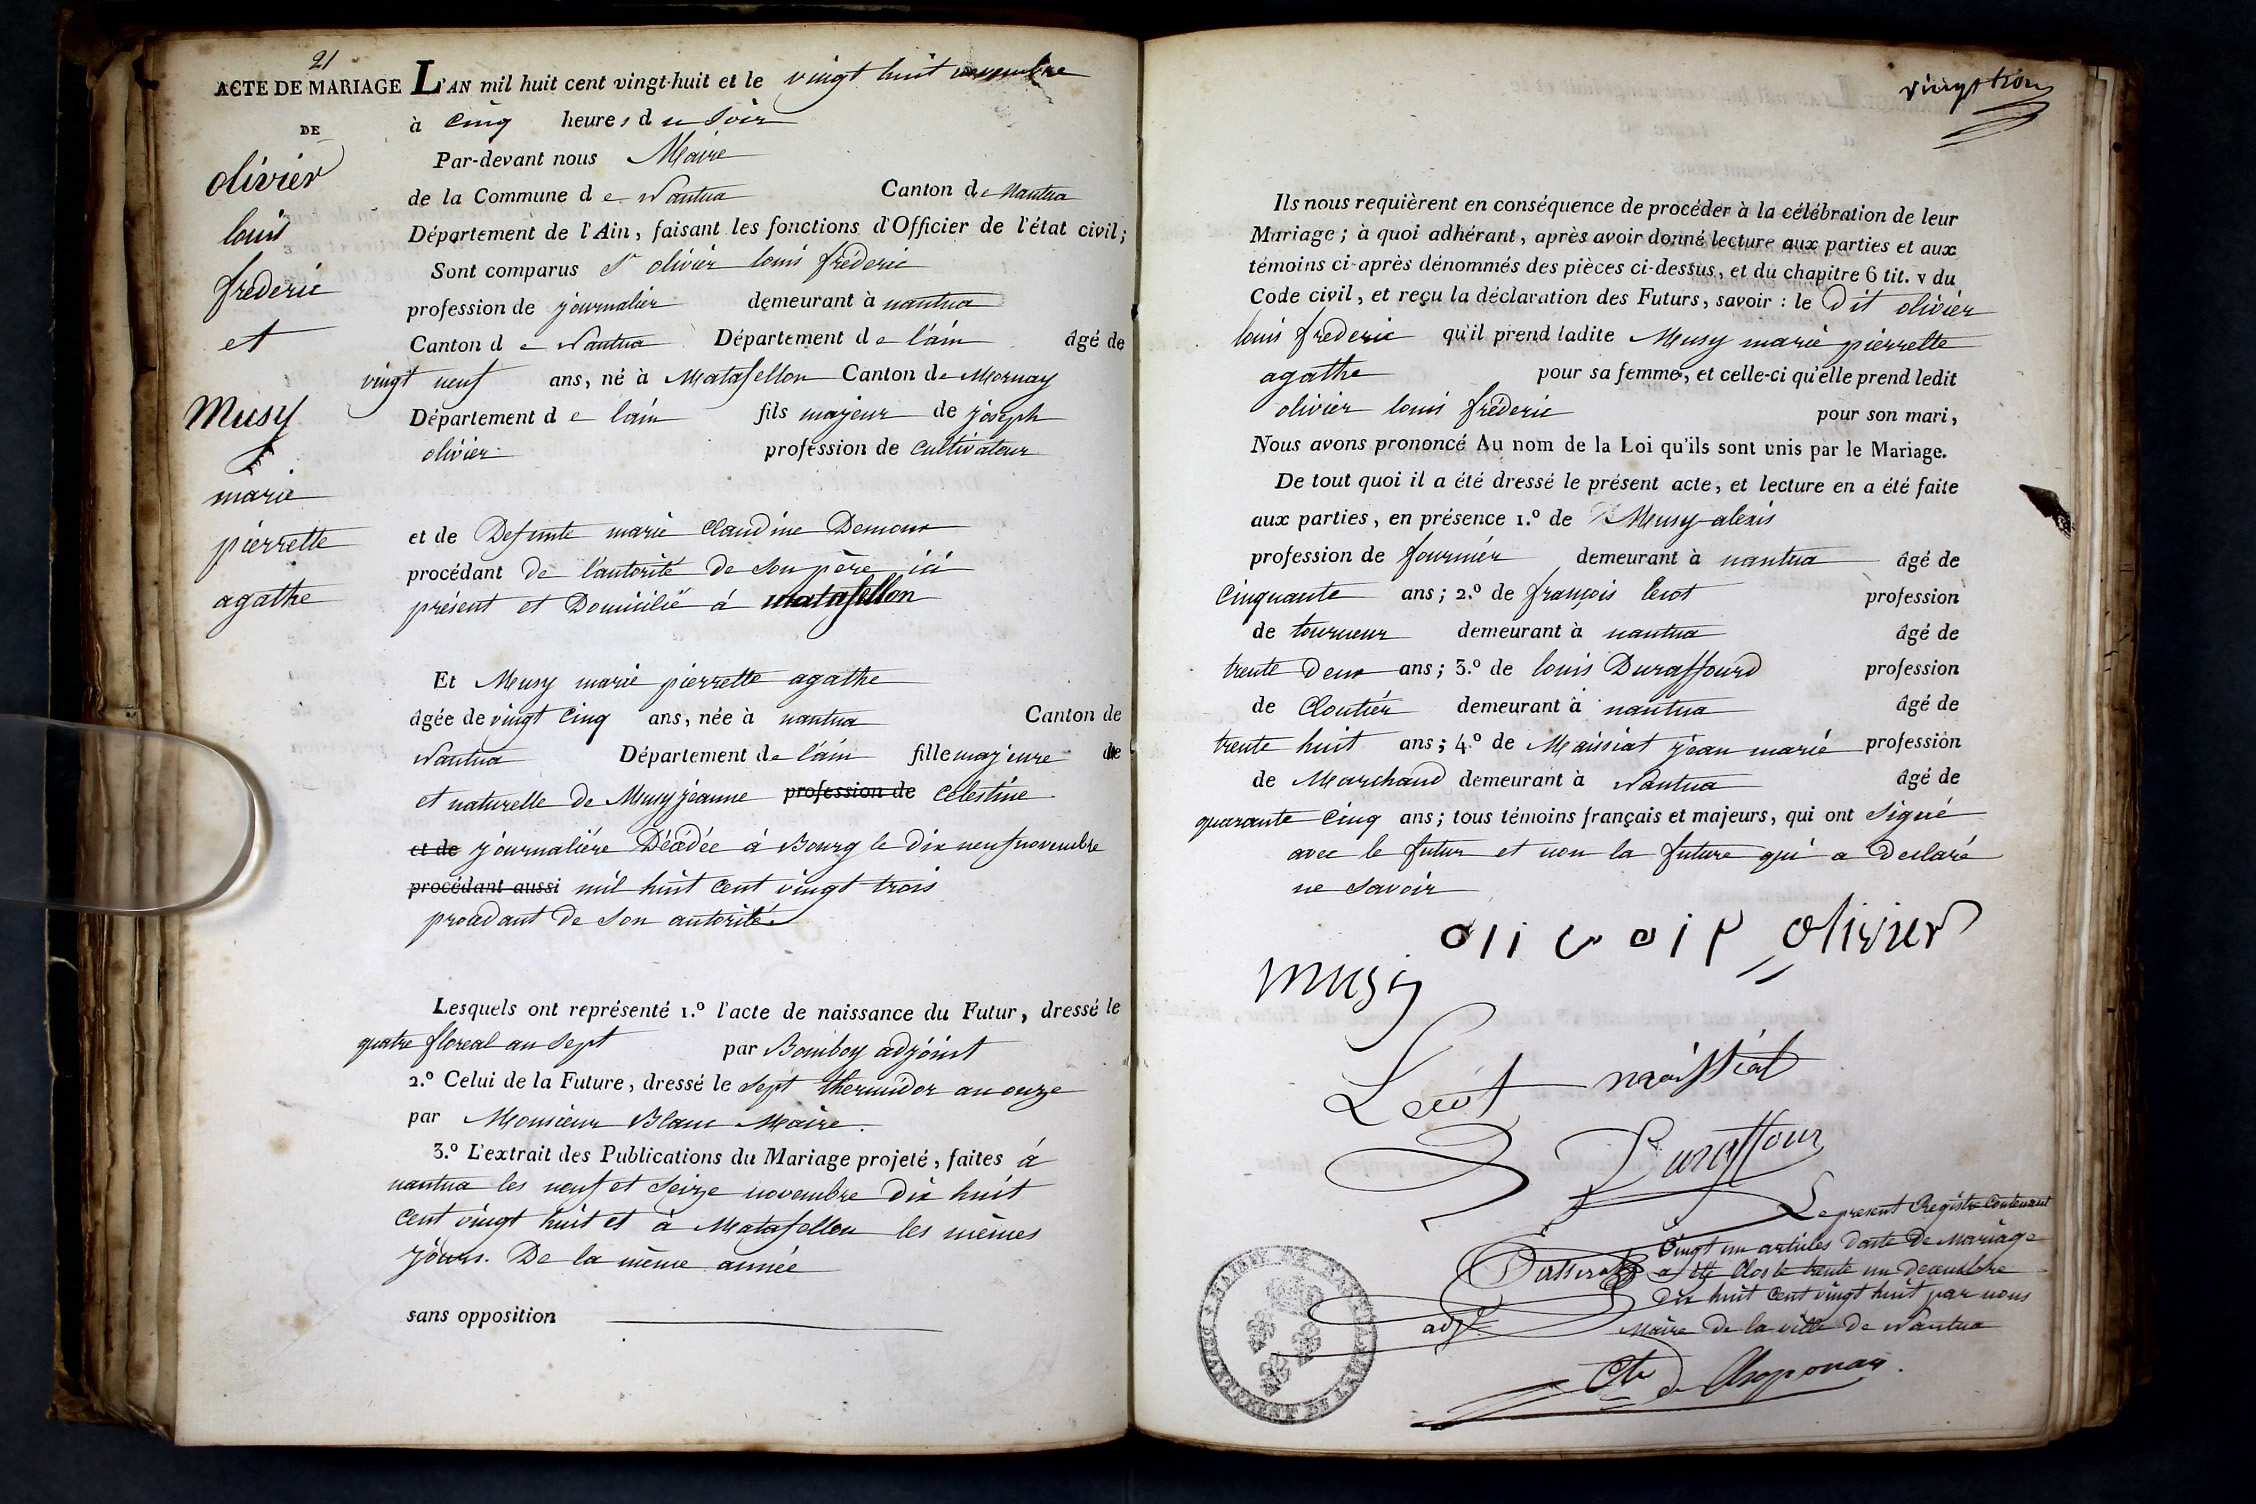 21
ACTE DE MARIAGE
DE
olivier
louis
frederic
et
Musy
marie
pierrette
agathe
L'AN mil huit cent vingt-huit et le vingt huit novembre
à cinq heures du soir
Par-devant nous Maire
de la Commune de Nantua Canton de Nantua
Département de l'Ain, faisant les fonctions d'Officier de l'état civil;
Sont comparus Sr olivier louis fréderic
profession de journalier demeurant à nantua
Canton de Nantua Département de l'ain âgé de
vingt neuf ans, né à Matafellon Canton de Mornay
Département de lain fils majeur de joseph
olivier profession de cultivateur
et de Defunte marie Claudine Demour
procédant de l'autorité de son père ici
présent et Domicilié à matafellon
Et Musy marie pierrette agathe
âgée de vingt cinq ans, née à nantua Canton de
Nantua Département de l'ain fille majeure de
et naturelle de Musy jeanne profession de celestine
et de journalière Décédée à Bourg le dix neuf novembre
procédant aussi mil huit cent vingt trois
procedant de son autorité
Lesquels ont représenté 1.º l'acte de naissance du Futur, dressé le
quatre floreal an sept par Bomboy adjoint
2.º Celui de la Future, dressé le sept thermidor an onze
par Monsieur Blanc Maire.
3.º L'extrait des Publications du Mariage projeté, faites à
nantua les neuf et seize novembre dix huit
cent vingt huit et à Matafellon les mêmes
jours. De la même année
sans opposition
Ils nous requièrent en conséquence de procéder à la célébration de leur
Mariage; à quoi adhérant, après avoir donné lecture aux parties et aux
témoins ci-après dénommés des pièces ci-dessus, et du chapitre 6 tit. v du
Code civil, et reçu la déclaration des Futurs, savoir: le Dit olivier
louis frederic qu'il prend ladite Musy marie pierrette
agathe pour sa femme, et celle-ci qu'elle prend ledit
olivier louis fréderic pour son mari,
Nous avons prononcé Au nom de la Loi qu'ils sont unis par le Mariage.
De tout quoi il a été dressé le présent acte, et lecture en a été faite
aux parties, en présence 1.º de Musy alexis
profession de fournier demeurant à nantua âgé de
Cinquante ans; 2.º de françois lerot profession
de tourneur demeurant à nantua âgé de
trente deux ans; 3.º de louis Duraffourd profession
de Cloutier demeurant à nantua âgé de
trente huit ans; 4.º de Maissiat jean marie profession
de Marchand demeurant à Nantua âgé de
quarante cinq ans; tous témoins français et majeurs, qui ont signé
avec le futur et non la future qui a declaré
ne savoir
olivier
musy
Lerot maissiat
Duraffour
Le present Registre contenant
Vingt un articles d'acte de Mariage
a été clos le trente un Decembre
dix huit cent vingt huit par nous
Maire de la ville de Nantua
adjt
Cte de